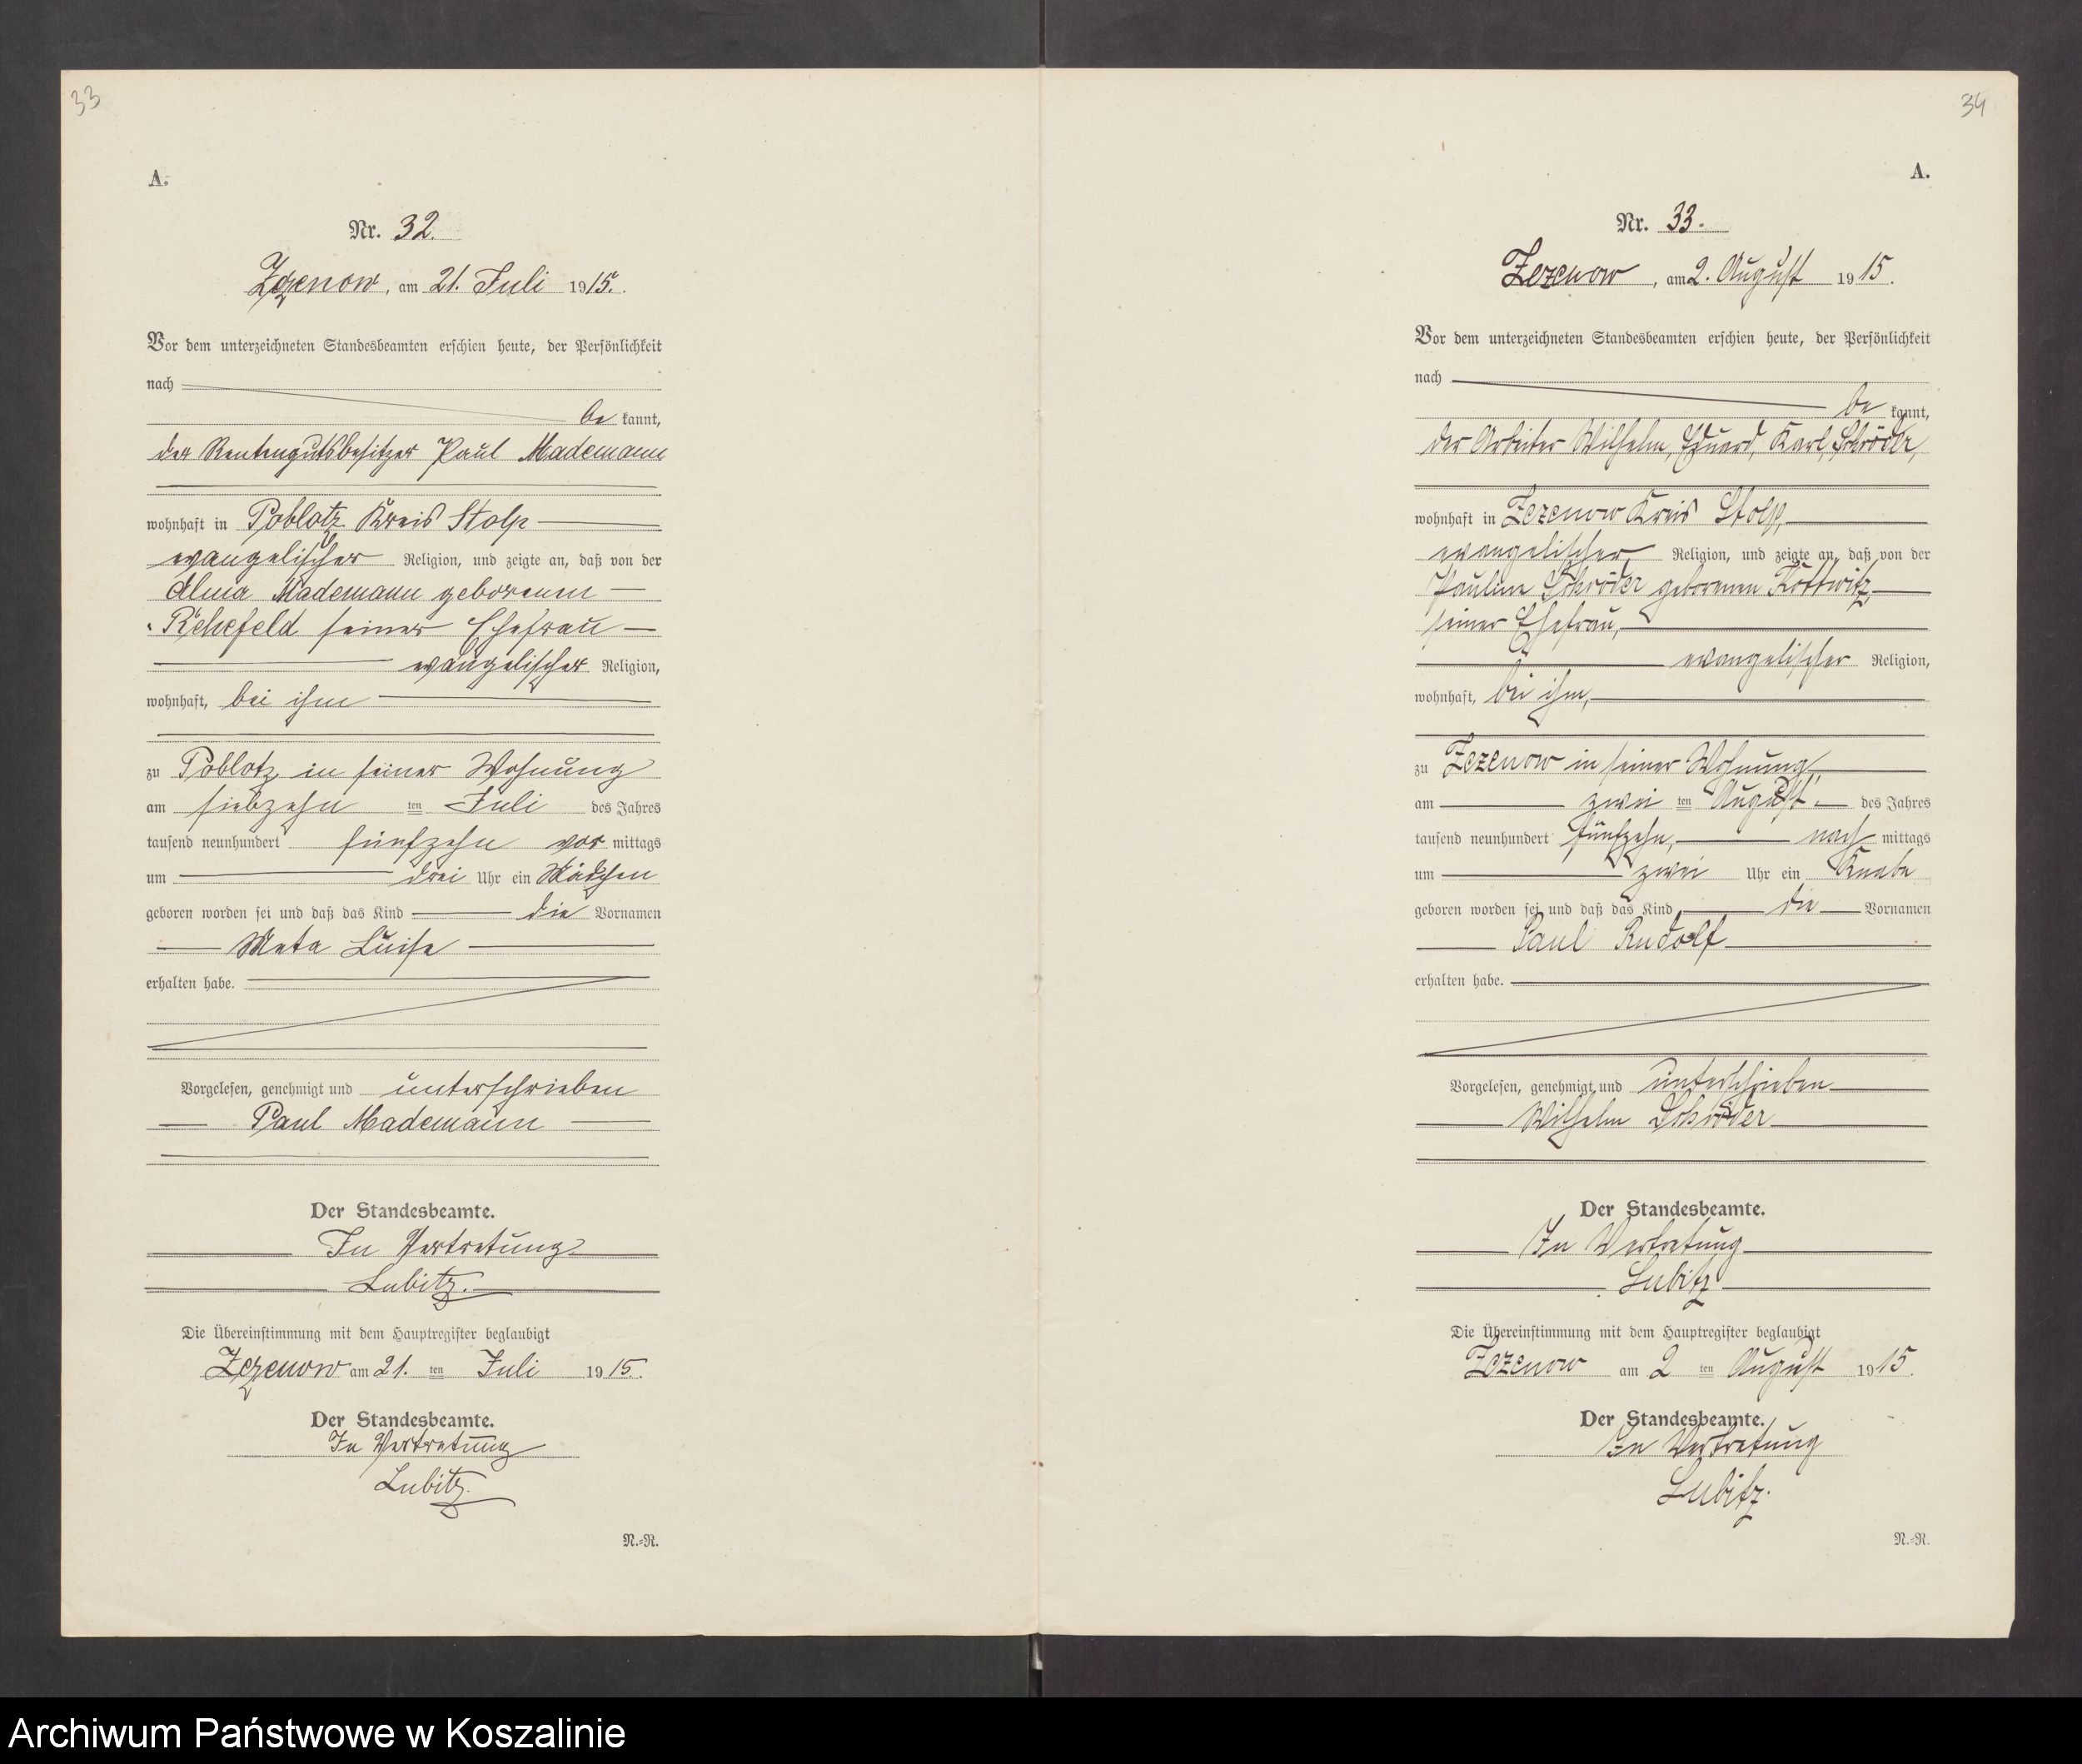 33
A.
Nr. 32.
Zezenow, am 21. Juli 1915.
Vor dem unterzeichneten Standesbeamten erschien heute, der Persönlichkeit
nach
be kannt,
der Rentengutsbesitzer Paul Mademann
wohnhaft in Poblotz Kreis Stolp
evangelischer Religion, und zeigte an, daß von der
Alma Mademann geborenen
Rehefeld seiner Ehefrau
evangelischer Religion,
wohnhaft, bei ihm
zu Poblotz in seiner Wohnung
am siebzehn ten Juli des Jahres
tausend neunhundert fünfzehn vor mittags
um drei Uhr ein Mädchen
geboren worden sei und daß das Kind die Vornamen
Meta Luise
erhalten habe.
Vorgelesen, genehmigt und unterschrieben
Paul Mademann
Der Standesbeamte.
In Vertretung
Lubitz.
Die Übereinstimmung mit dem Hauptregister beglaubigt
Zezenow am 21. ten Juli 1915.
Der Standesbeamte.
In Vertretung
Lubitz.
N.=R.
34
A.
Nr. 33.
Zezenow, am 2. August 1915.
Vor dem unterzeichneten Standesbeamten erschien heute, der Persönlichkeit
nach
be kannt,
der Arbeiter Wilhelm, Eduard, Karl, Schröder,
wohnhaft in Zezenow Kreis Stolp,
evangelischer Religion, und zeigte an, daß von der
Pauline Schröder geborenen Kottwitz,
seiner Ehefrau,
evangelischer Religion,
wohnhaft, bei ihm,
zu Zezenow in seiner Wohnung,
am zwei ten August des Jahres
tausend neunhundert fünfzehn, nach mittags
um zwei Uhr ein Knabe
geboren worden sei und daß das Kind die Vornamen
Paul Rudolf
erhalten habe.
Vorgelesen, genehmigt und unterschrieben
Wilhelm Schröder
Der Standesbeamte.
In Vertretung
Lubitz
Die Übereinstimmung mit dem Hauptregister beglaubigt
Zezenow am 2 ten August 1915.
Der Standesbeamte.
In Vertretung
Lubitz.
N.=R.
Archiwum Państwowe w Koszalinie